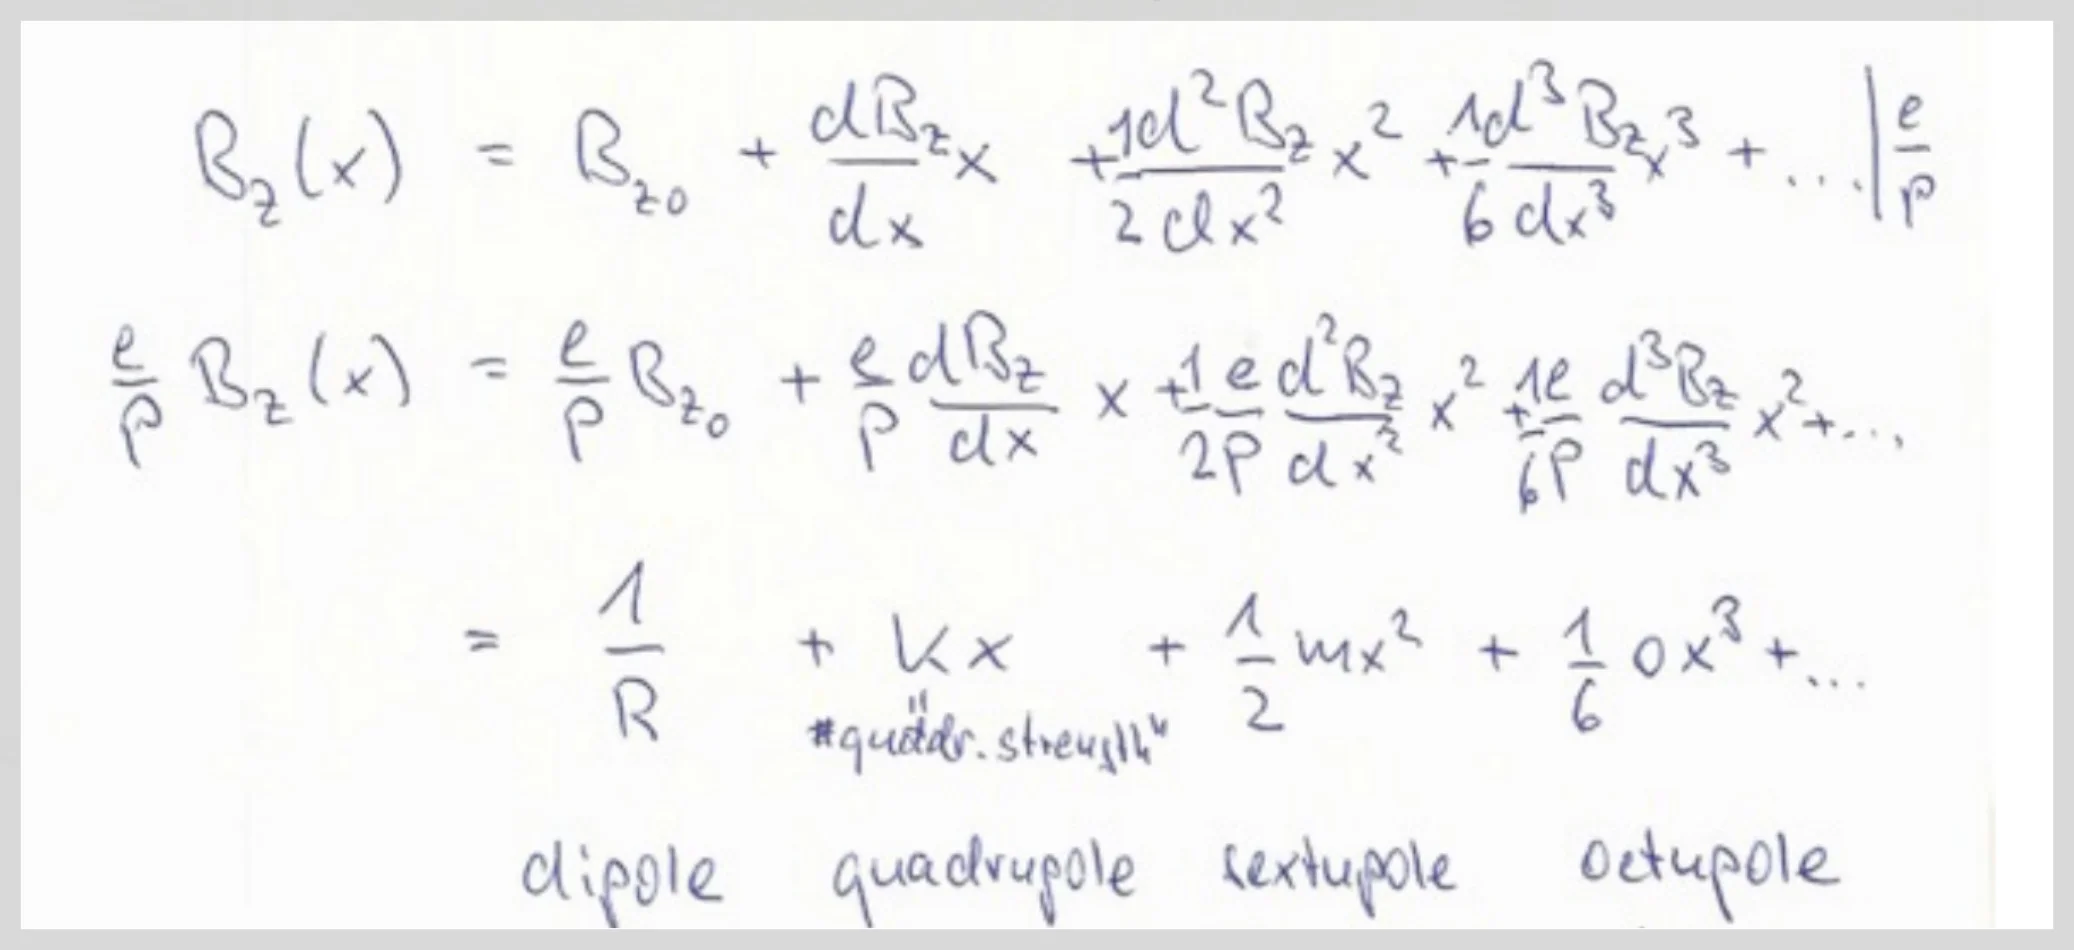 B_z(x) = B_z0 + dB_z/dx x + 1/2 d²B_z/dx² x² + 1/6 d³B_z/dx³ x³ + ... | e/p
e/p B_z(x) = e/p B_z0 + e/p dB_z/dx x + 1/2 e/p d²B_z/dx² x² + 1/6 e/p d³B_z/dx³ x² + ...
= 1/R + kx + 1/2 mx² + 1/6 ox³ + ...
"quadr. strength"
dipole quadrupole sextupole octupole